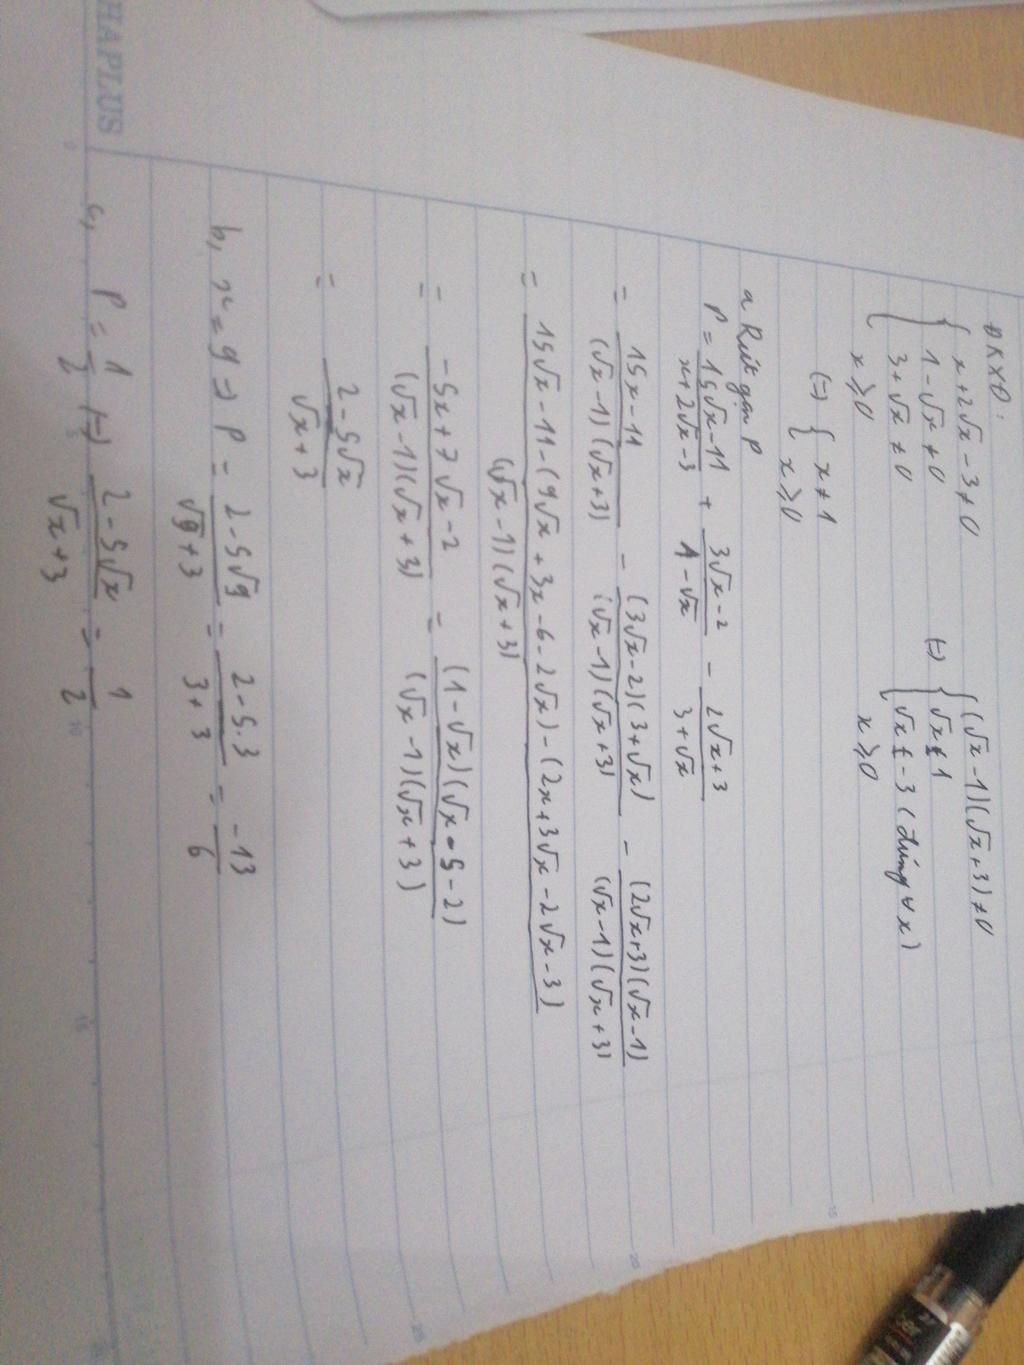 ĐKXĐ:
{ x+2√x-3≠0
1-√x≠0
3+√x≠0
x≥0
(=) { (√x-1)(√x+3)≠0
√x≠1
√x≠-3 (đúng ∀x)
x≥0
(=) { x≠1
x≥0
a Rút gọn P
P = 15√x-11 / x+2√x-3 + 3√x-2 / 1-√x - 2√x+3 / 3+√x
= 15x-11 / (√x-1)(√x+3) - (3√x-2)(3+√x) / (√x-1)(√x+3) - (2√x+3)(√x-1) / (√x-1)(√x+3)
= 15√x-11-(9√x+3x-6-2√x)-(2x+3√x-2√x-3) / (√x-1)(√x+3)
= -5x+7√x-2 / (√x-1)(√x+3) = (1-√x)(√x 5-2) / (√x-1)(√x+3)
= 2-5√x / √x+3
b, x=9 => P = 2-5√9 / √9+3 = 2-5.3 / 3+3 = -13 / 6
c, P = 1/2 (=) 2-5√x / √x+3 = 1/2
HAPLUS
0
5
10
15
20
15
20
25